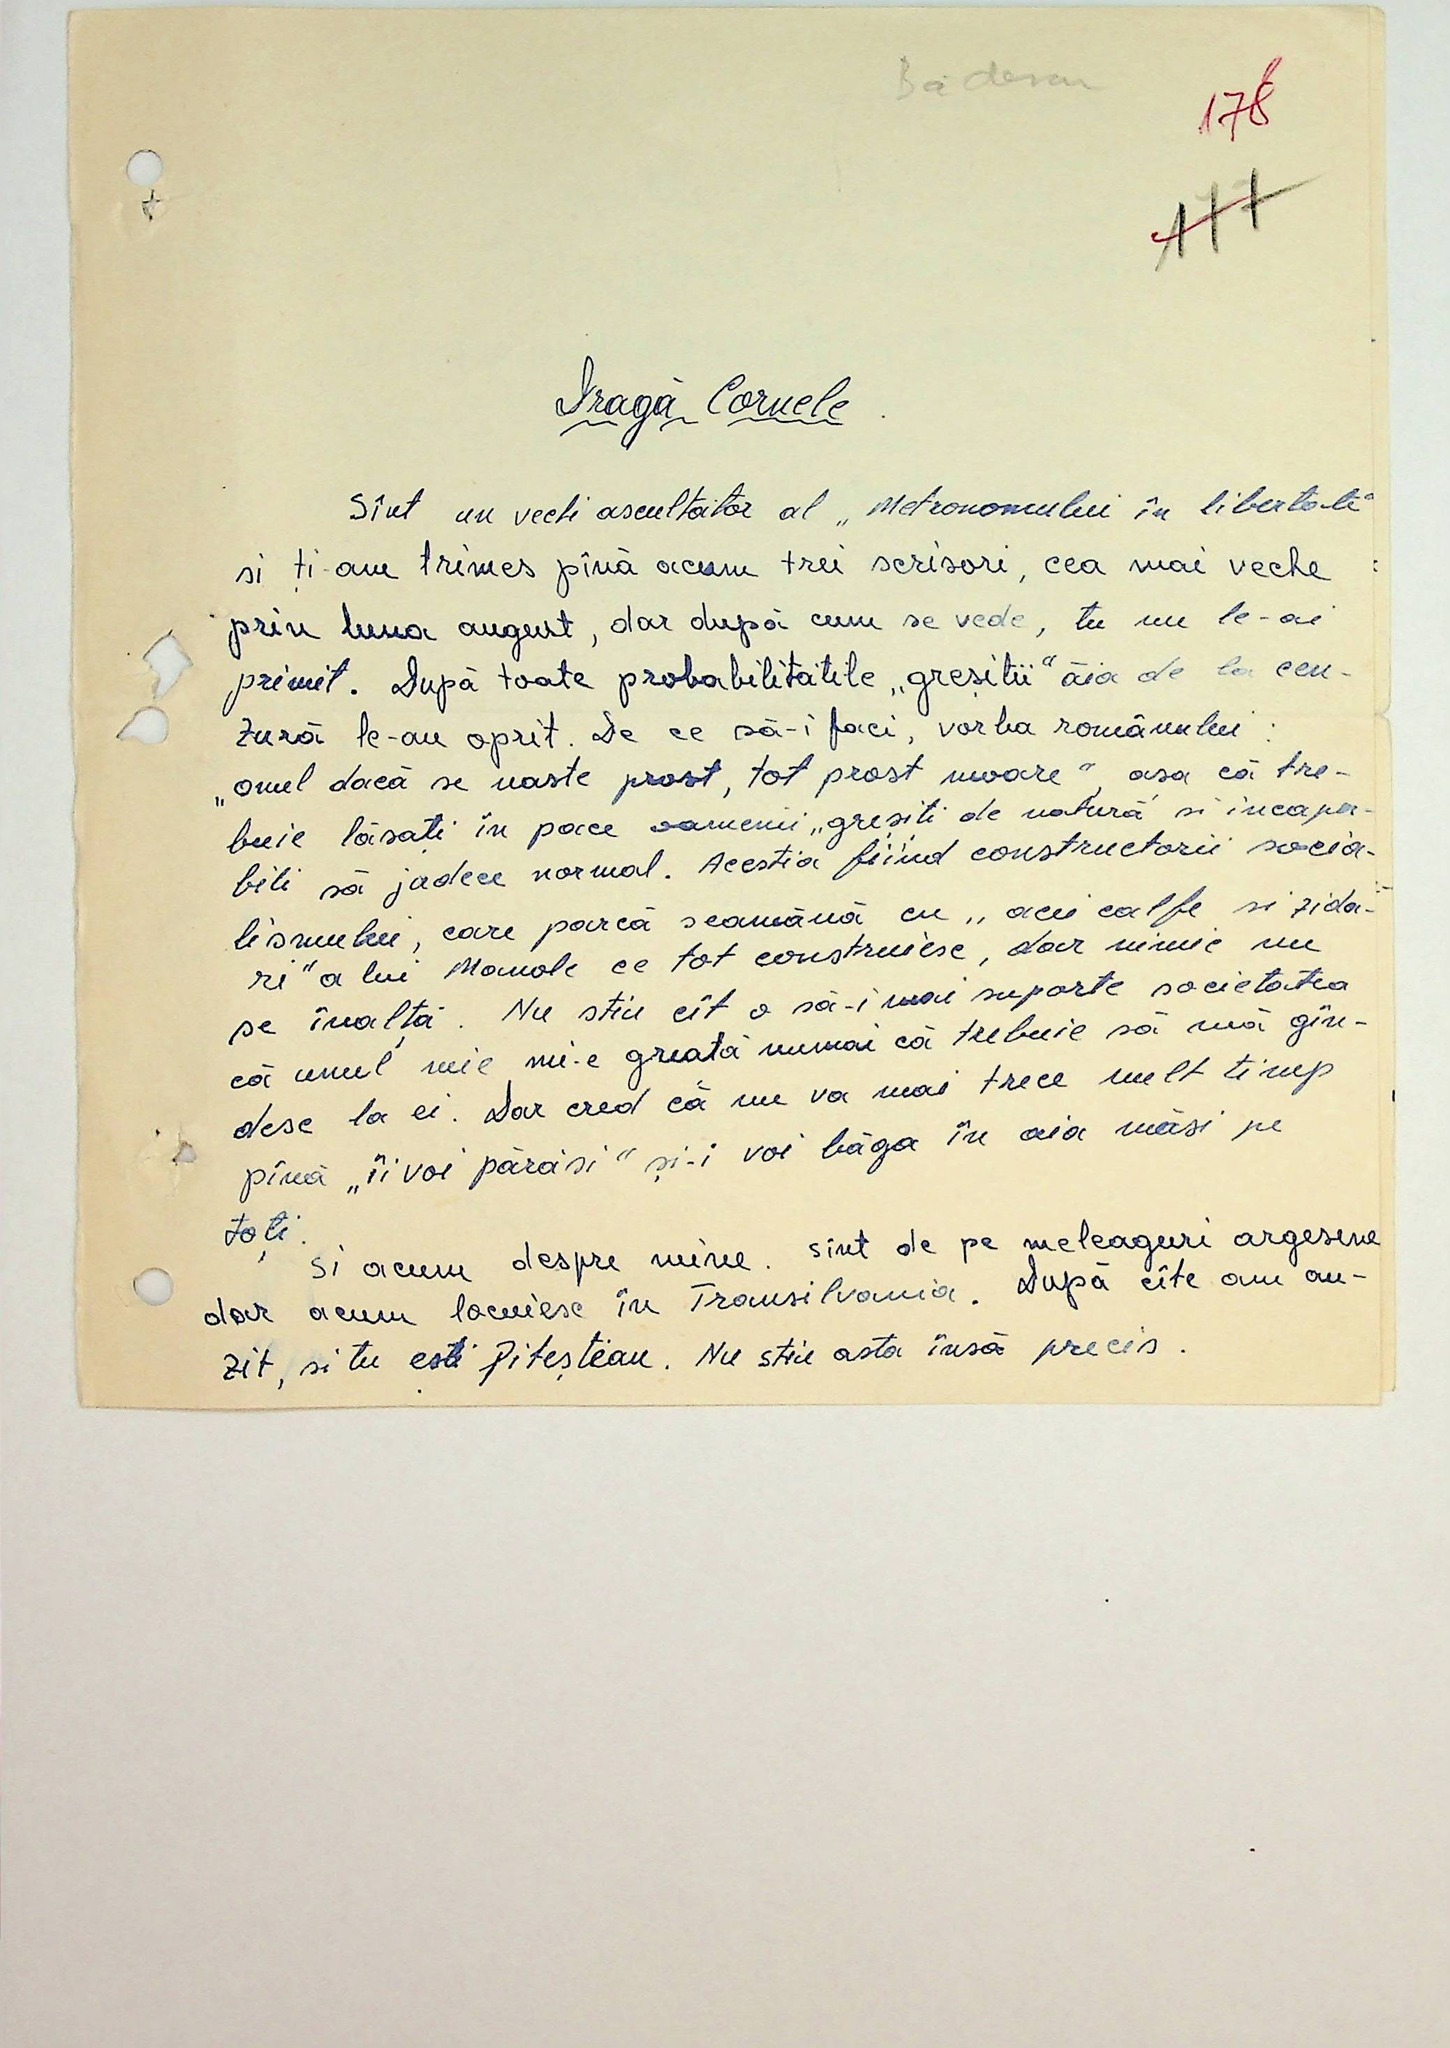 Bădescu
178
177
Dragă Cornele
Sînt un vechi ascultător al „Metronomului în libertate"
si ți-am trimes pînă acum trei scrisori, cea mai veche
prin luna august, dar după cum se vede, tu nu le-ai
primit. După toate probabilitățile „greșitii" ăia de la cen-
zură le-au oprit. De ce să-i faci, vorba românului :
„omul dacă se naste prost, tot prost moare", asa că tre-
buie lăsați în pace oamenii „greșiti de natură" si incapa-
bili să judece normal. Acestia fiind constructorii socia-
lismului, care parcă seamănă cu „acei calfe si zida-
ri" a lui Manole ce tot construiesc, dar nimic nu
se înalță. Nu stiu cît o să-i mai suporte societatea
că unul mie mi-e greată numai că trebuie să mă gîn-
desc la ei. Dar cred că nu va mai trece mult timp
pînă „îi voi părăsi" și-i voi băga în aia măsi pe
toți.
Si acum despre mine. Sînt de pe meleaguri argesene
dar acum locuiesc în Transilvania. După cîte am au-
zit, si tu esti Piteștean. Nu stiu asta însă precis.